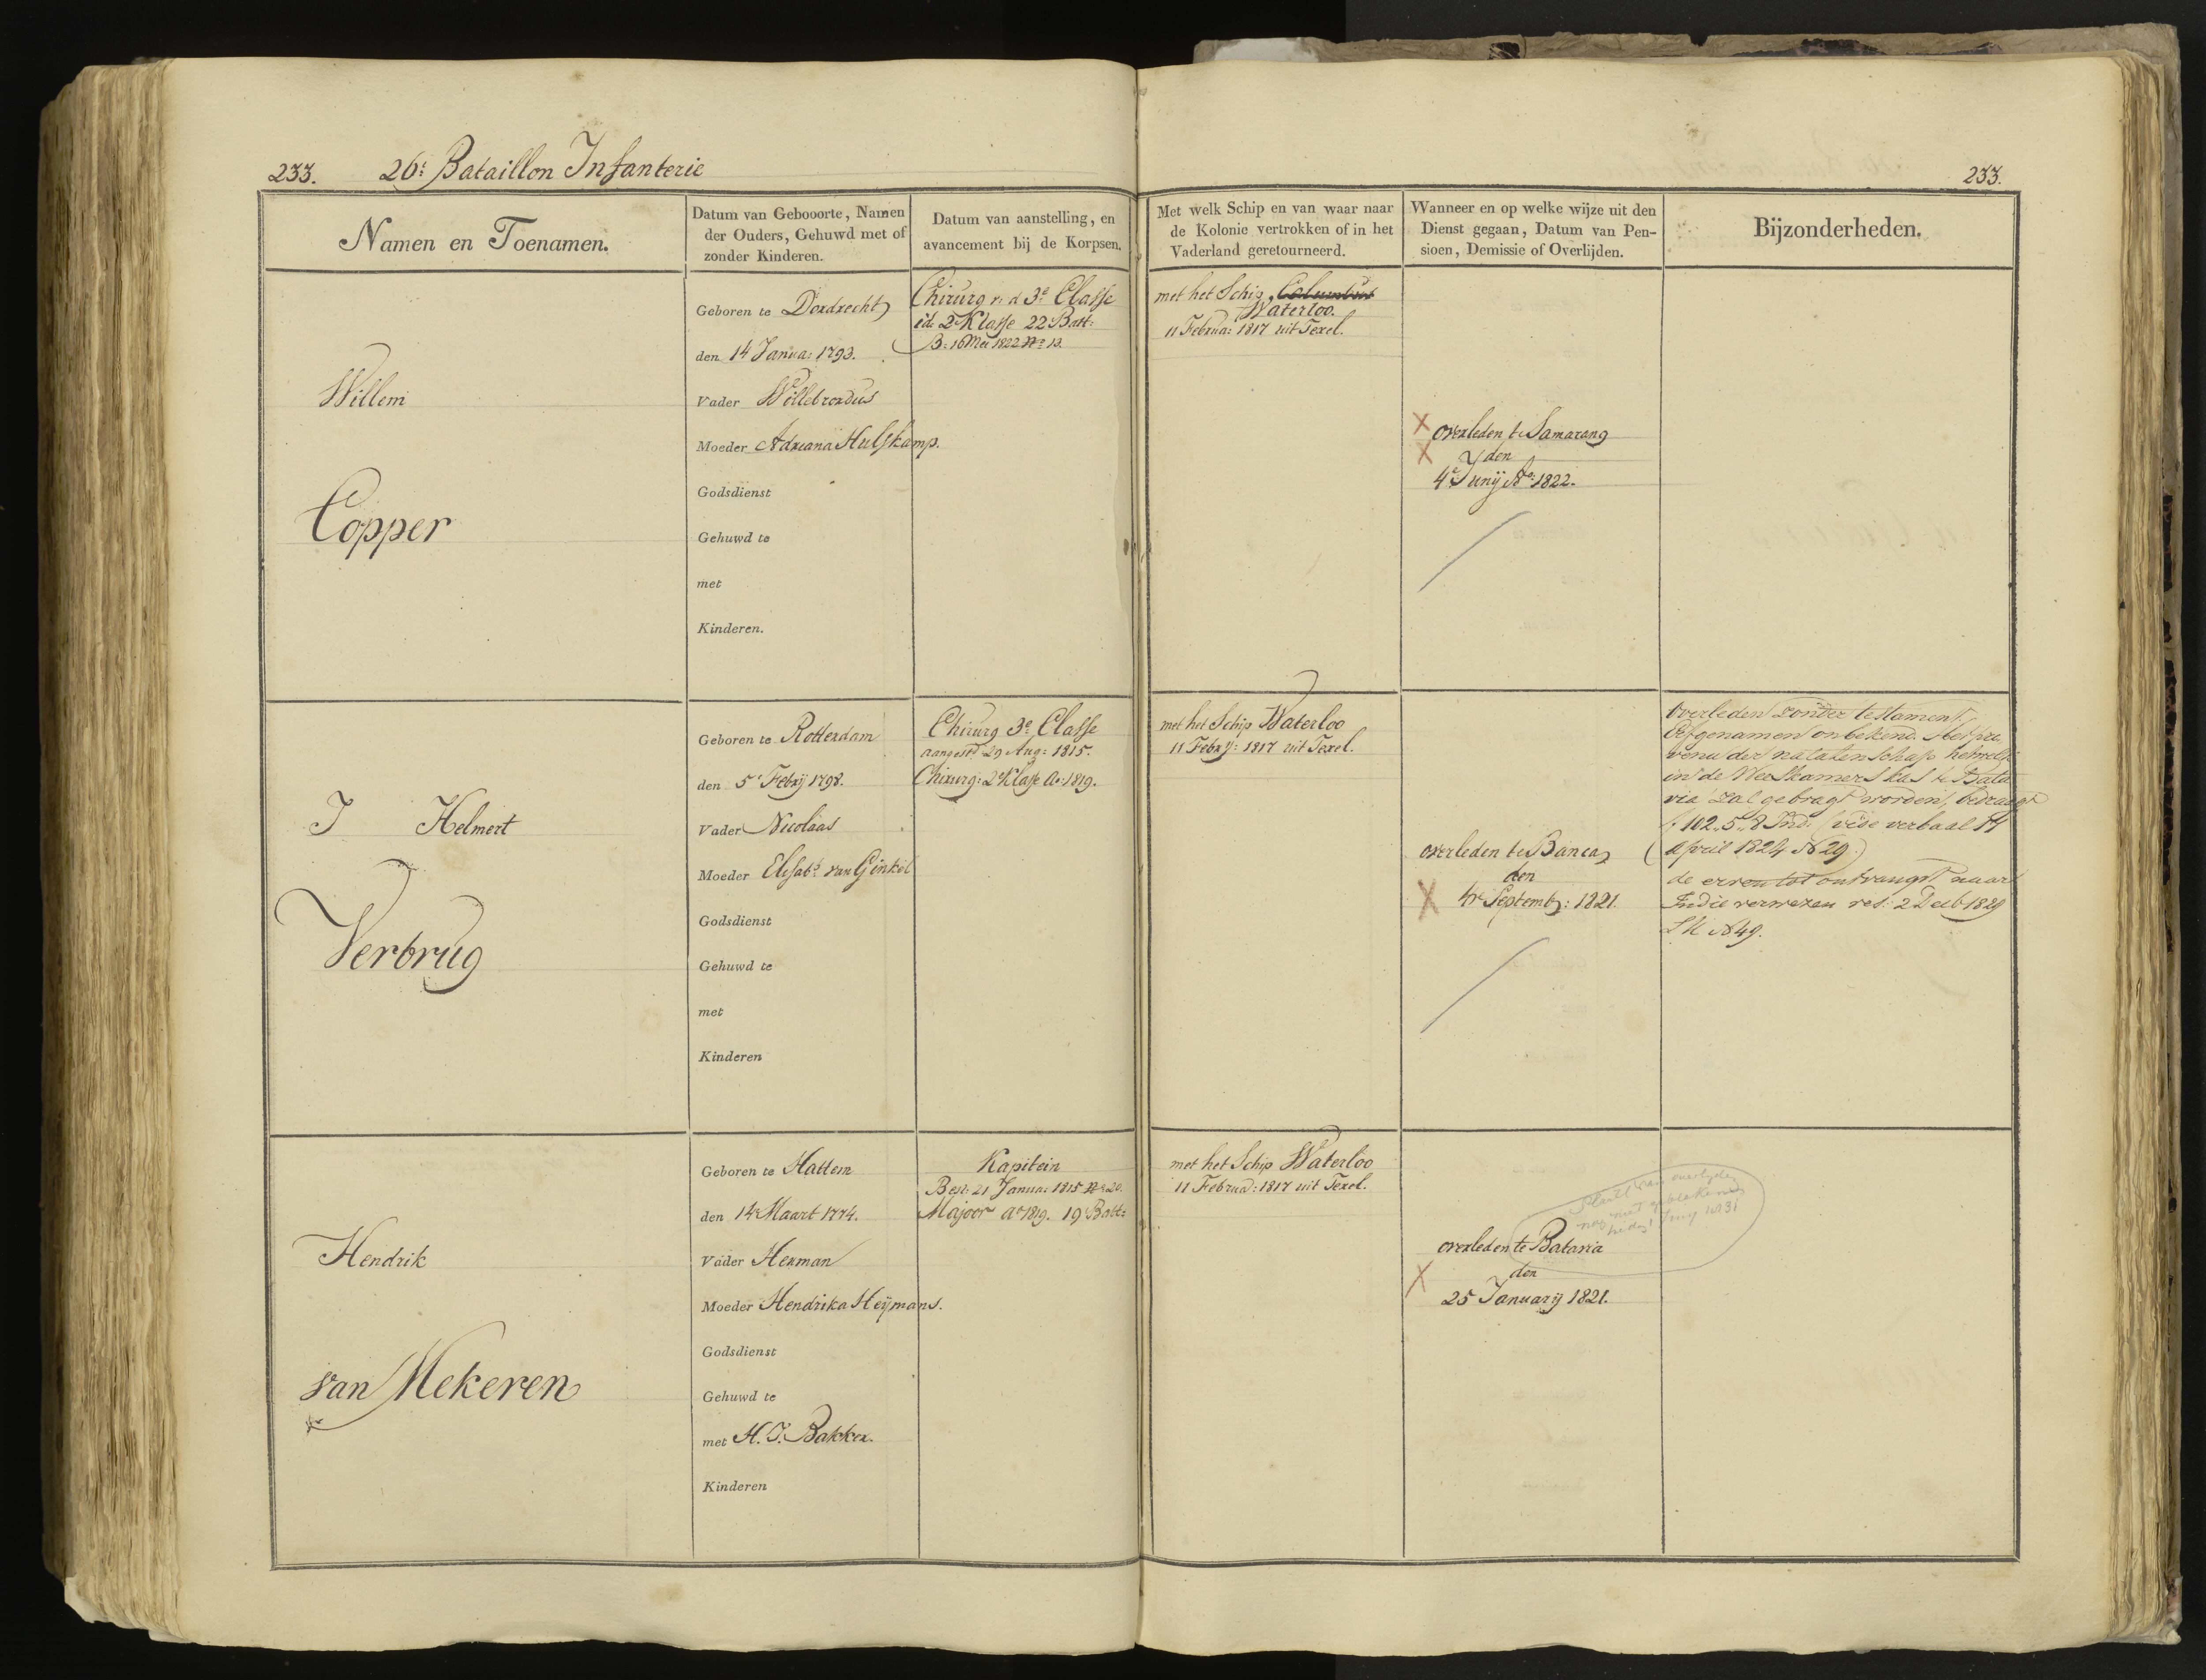 233. 26e Bataillon Infanterie
233.
Namen en Toenamen.
Datum van Gebooorte, Namen
der Ouders, Gehuwd met of
zonder Kinderen.
Datum van aanstelling, en
avancement bij de Korpsen.
Met welk Schip en van waar naar
de Kolonie vertrokken of in het
Vaderland geretourneerd.
Wanneer en op welke wijze uit den
Dienst gegaan, Datum van Pen-
sioen, Demissie of Overlijden.
Bijzonderheden.
Willem
Copper
Geboren te Dordrecht
den 14 Janua: 1793.
Vader Willebrordus
Moeder Adriana Hulskamp.
Godsdienst
Gehuwd te
met
Kinderen.
Chirurg n: d 3e Classe
id: 2e Klasse 22 Batt:
B: 16 Mei 1822 No 13.
met het Schip Columbus
Waterloo.
11 Februa: 1817 uit Texel.
overleden te Samarang
den
4e Junij Ao 1822.
J Helmert
Verbrug
Geboren te Rotterdam
den 5e Febrij 1798.
Vader Nicolaas
Moeder Elisabt van Ginkel
Godsdienst
Gehuwd te
met
Kinderen
Chirurg 3e Classe
aangestd 29 Aug: 1815.
Chirurg: 2e Klasse Ao: 1819.
met het Schip Waterloo
11 Febrij: 1817 uit Texel.
overleden te Banca
den
4e Septemb: 1821.
Overleden zonder testament
Erfgenamen onbekend. Het pro
venu der nalatenschap hetwelk
in de Weeskamers kas te Bata
via zal gebragt worden, bedraagt
f 102.,5.,8 Ind: (vide verbaal 14
April 1824 No 29.)
de erven tot ontvangst naar
Indie verwezen res: 2 Decb 1829
La K No 49.
Hendrik
van Mekeren
Geboren te Hattem
den 14e Maart 1774.
Vader Herman
Moeder Hendrika Heijmans.
Godsdienst
Gehuwd te
met H. J. Bakker.
Kinderen
Kapitein
Best: 21 Janua: 1815 No 20.
Majoor Ao 1819. 19 Batt:
met het Schip Waterloo
11 Februa: 1817 uit Texel.
van overlijden
nog niet
Juny 1831
overleden te Batavia
den
25 Januarij 1821.